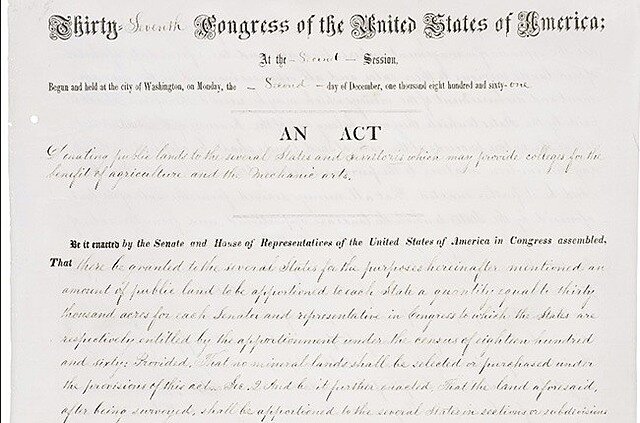 Thirty-Seventh Congress of the United States of America;
At the - Second - Session,
Begun and held at the city of Washington, on Monday, the - Second - day of December, one thousand eight hundred and sixty-one
AN ACT
Donating public lands to the several States and Territories which may provide colleges for the
benefit of agriculture and the Mechanic arts.
Be it enacted by the Senate and House of Representatives of the United States of America in Congress assembled,
That there be granted to the several States for the purposes hereinafter mentioned an
amount of public land to be apportioned to each State a quantity equal to thirty
thousand acres for each Senator and representative in Congress to which the States are
respectively entitled by the apportionment under the census of eighteen hundred
and sixty: Provided, That no mineral lands shall be selected or purchased under
the provisions of this act. Sec. 2 And be it further enacted, That the land aforesaid,
after being surveyed, shall be apportioned to the several States in sections or subdivisions